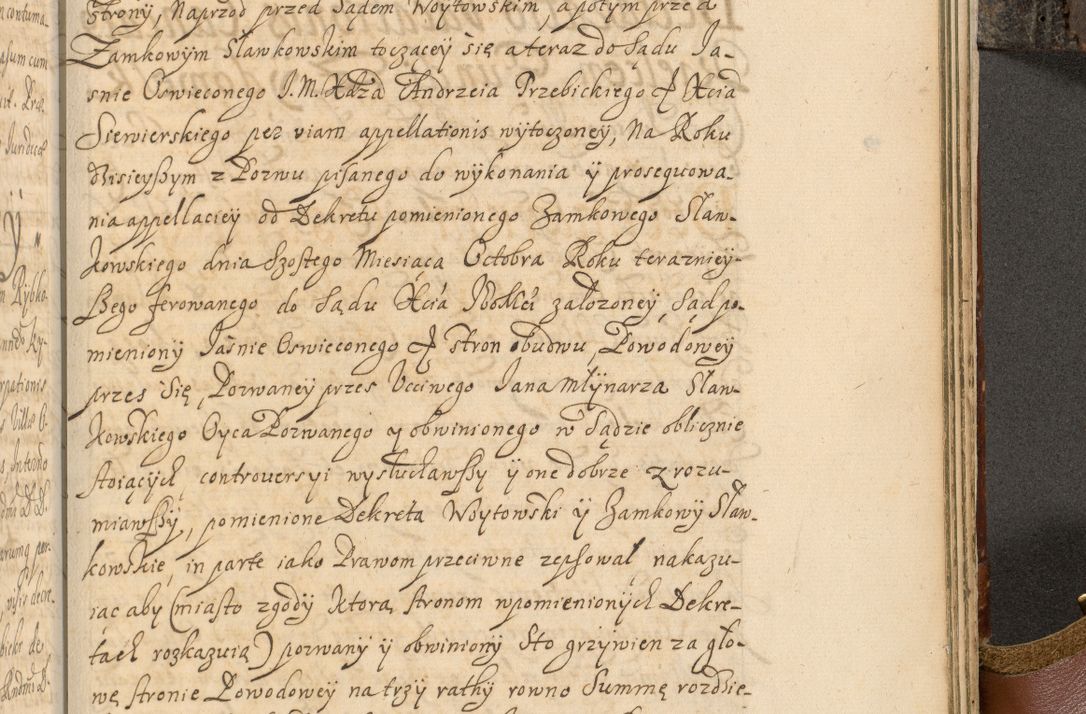 Strony, Naprzod przed Sądem Woytowskim, a potym przed
Zamkowym Sławkowskim toczącey się a teraz do Sądu Ja-
snie Oswieconego J. M. Xdza Andrzeia Trzebickiego Xcia
Siewierskiego per viam appellationis wytoczoney, Na Roku
dzisieyßym z Pozwu pisanego do wykonania y prosequowa-
nia appellaciey od Dekretu pomienionego Zamkowego Sław-
kowskiego dnia szostego Miesiąca Octobra Roku terazniey-
ßego ferowanego do Sądu Xcia załozoney, Sąd po-
mieniony Jasnie Oswieconego stron obudwu, Powodowey
przes Się, Pozwaney przes Ucciwego Jana Młynarza Sław-
kowskiego Oyca Pozwanego y obwinionego w Sądzie oblicznie
stoiących controversyi wysłuchawßy y one dobrze zrozu-
miawßy, pomienione Dekreta Woytowski y Zamkowy Sław-
kowskie, in parte iako Prawom przeciwne zepsował nakazu-
iąc aby (miasto zgody ktorą stronom wpomienionych Dekre-
tach rozkazuią) pozwany y obwiniony Sto grzywien za gło-
wę stronie Powodowey na trzy rathy rowno Summę rozdzie-